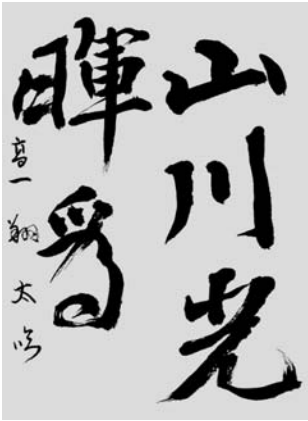 山川光
暉為
高一 翔太吟